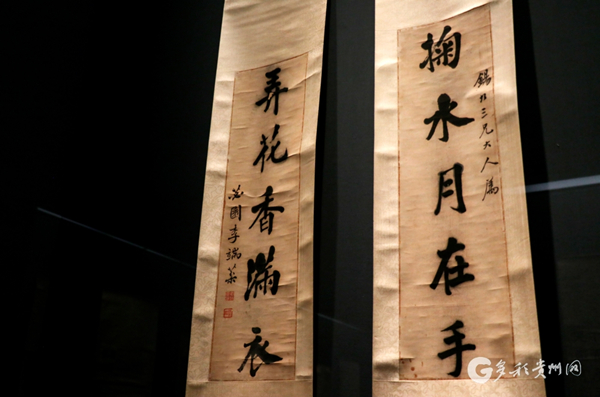 掬水月在手
錫三兄大人屬
弄花香滿衣
苾園李端棻
多彩贵州网